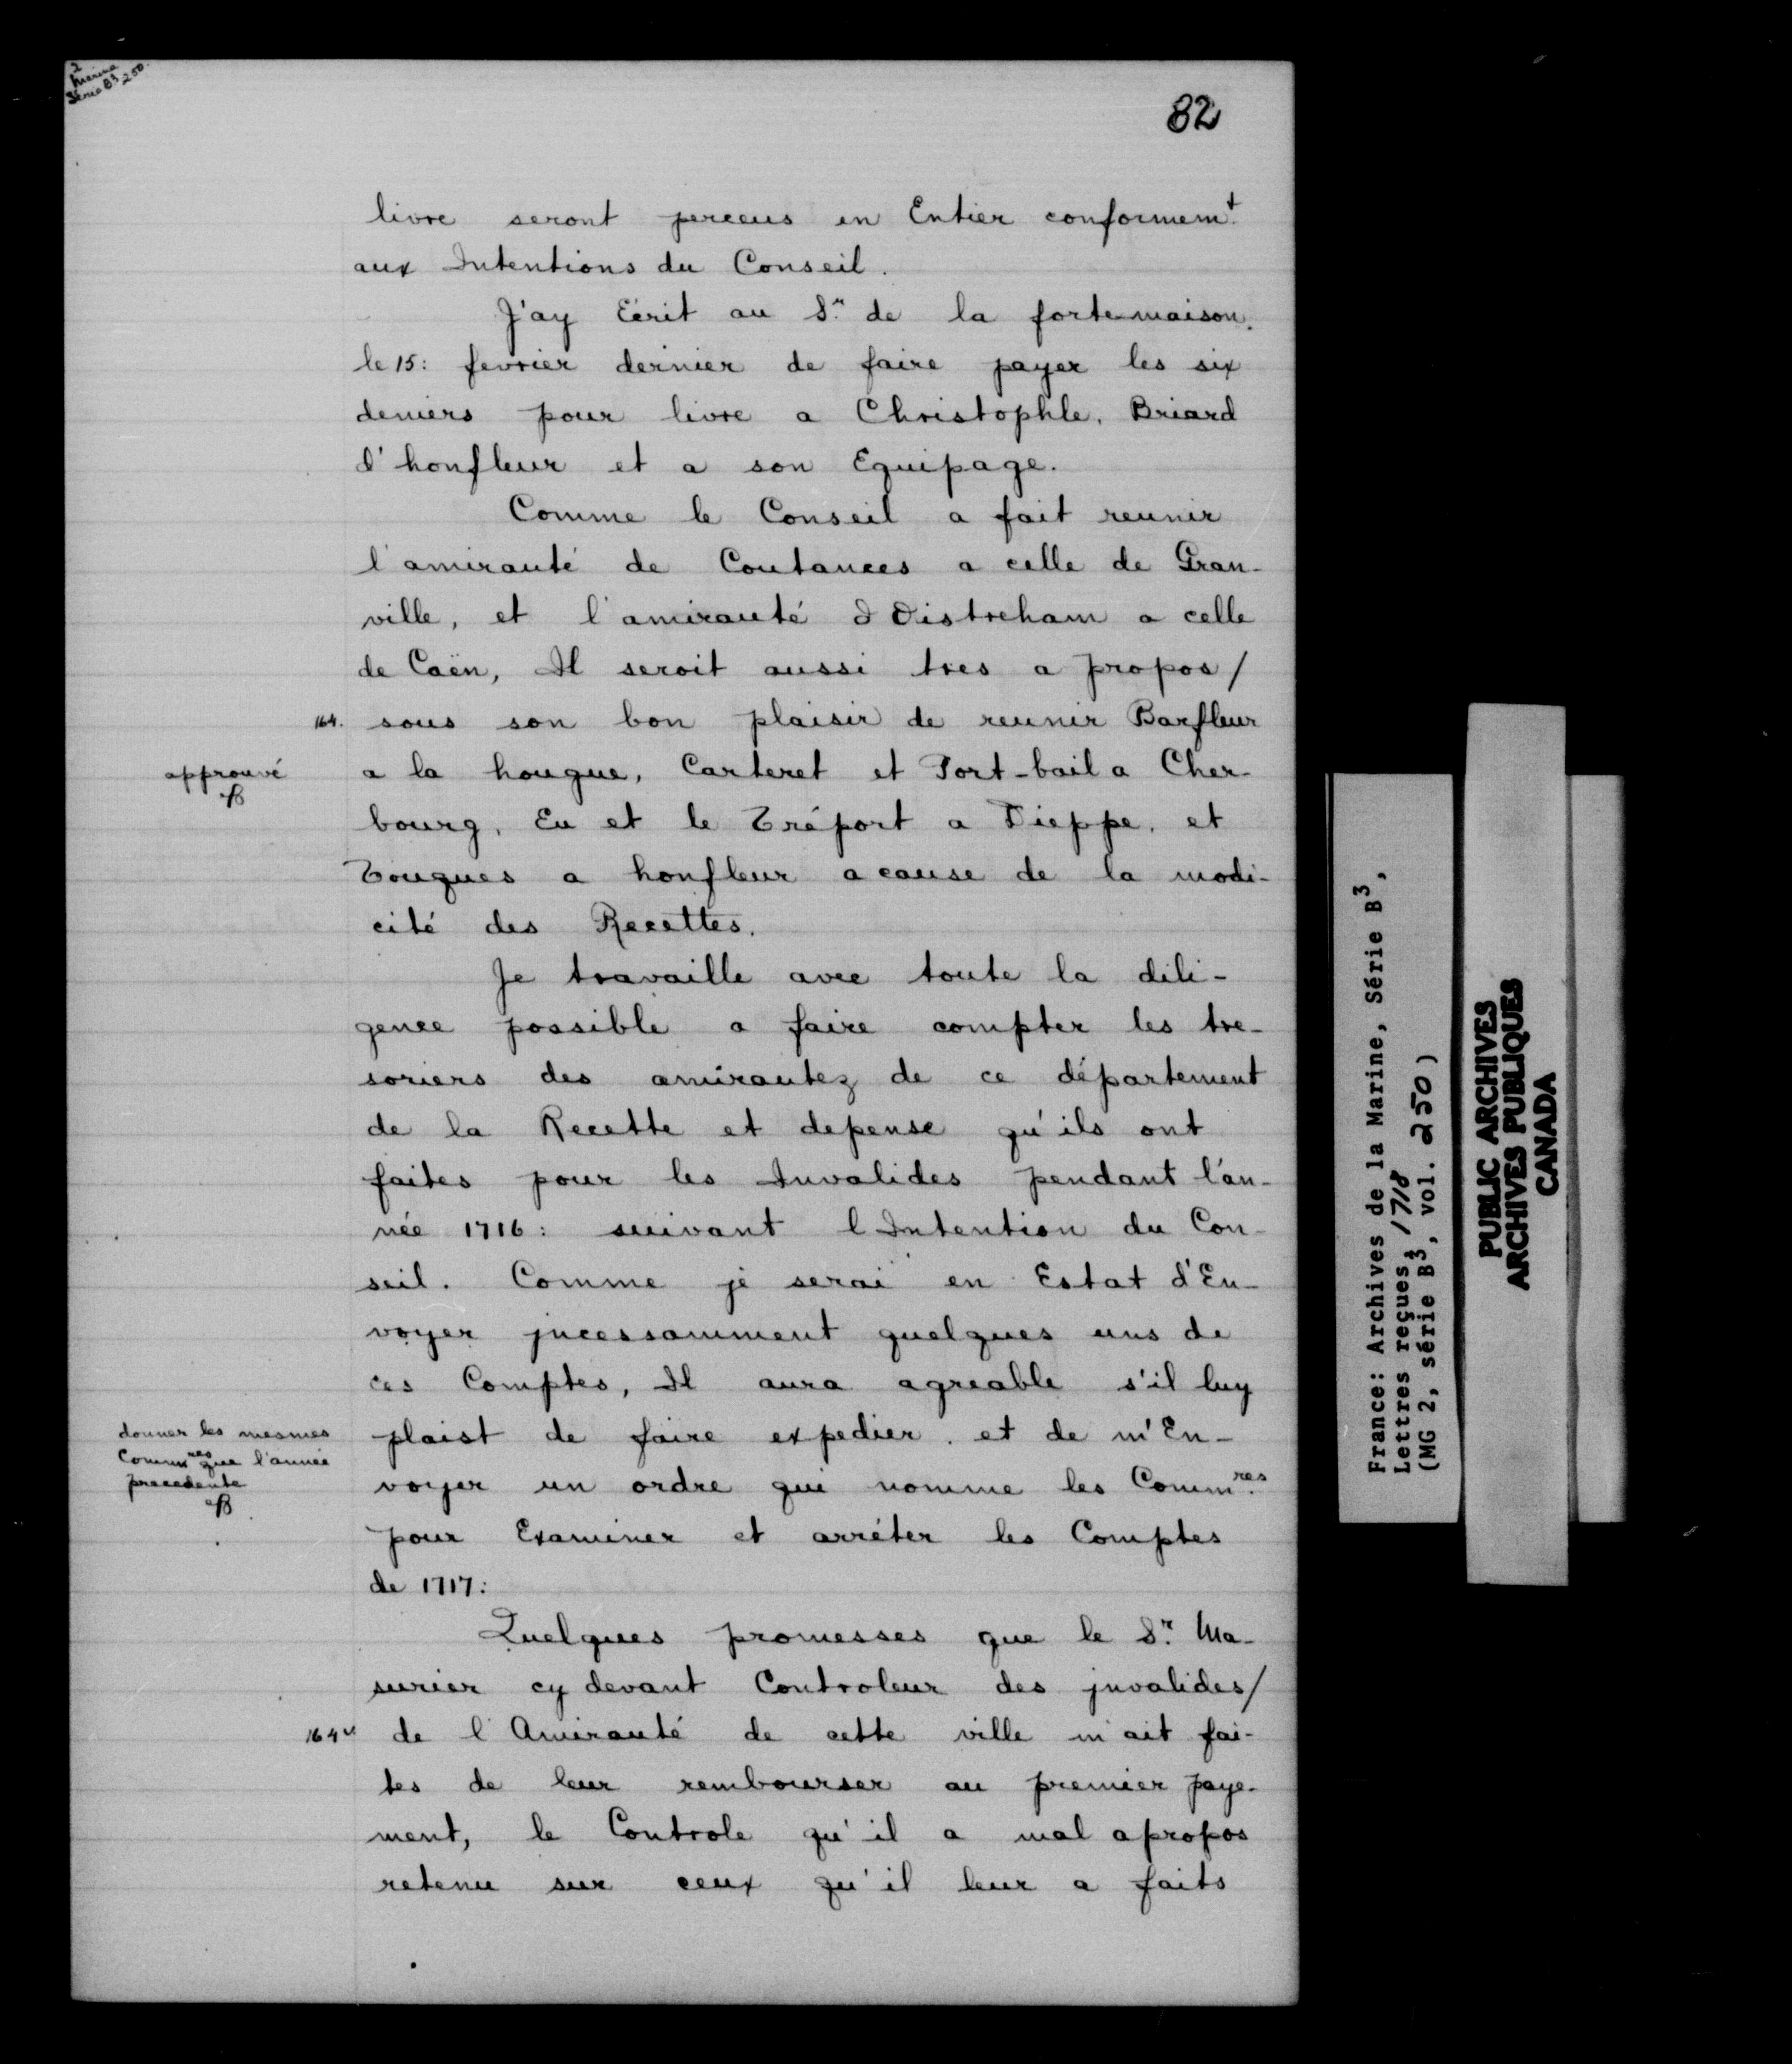 2
Marine
Série B3 250
82
livre seront perceus en Entier conformemt.
aux Intentions du Conseil.
J'ay Ecrit au Sr. de la fortemaison.
le 15: fevrier dernier de faire payer les six
deniers pour livre a Christophle, Briard
d'honfleur et a son Equipage.
Comme le Conseil a fait reunir
l'amirauté de Coutances a celle de Gran-
ville, et l'amirauté d Oistreham a celle
de Caën, Il seroit aussi tres a propos/
164. sous son bon plaisir de reunir Barfleur
approuvé
a la hougue, Carteret et Port-bail a Cher-
bourg, Eu et le Tréport a Dieppe, et
Touques a honfleur a cause de la modi-
cité des Recettes.
Je travaille avec toute la dili-
gence possible a faire compter les tre-
soriers des amirautez de ce département
de la Recette et depense qu'ils ont
faites pour les Invalides pendant l'an-
née 1716: suivant l Intention du Con-
seil. Comme je serai en Estat d'En-
voyer jncessamment quelques uns de
ces Comptes, Il aura agreable s'il luy
plaist de faire expedier. et de m'En-
voyer un ordre qui nomme les Commres.
pour Examiner et arréter les Comptes
de 1717:
donner les mesmes
Commres que l'année
precedente
Quelques promesses que le Sr. Ma-
surier cy devant Controleur des jnvalides/
164v de l'Amirauté de cette ville m'ait fai-
tes de leur rembourser au premier paye-
ment, le Controle qu'il a mal apropos
retenu sur ceux qu'il leur a faits
France: Archives de la Marine, Série B3,
Lettres reçues, 1718
(MG 2, série B3, vol. 250)
PUBLIC ARCHIVES
ARCHIVES PUBLIQUES
CANADA